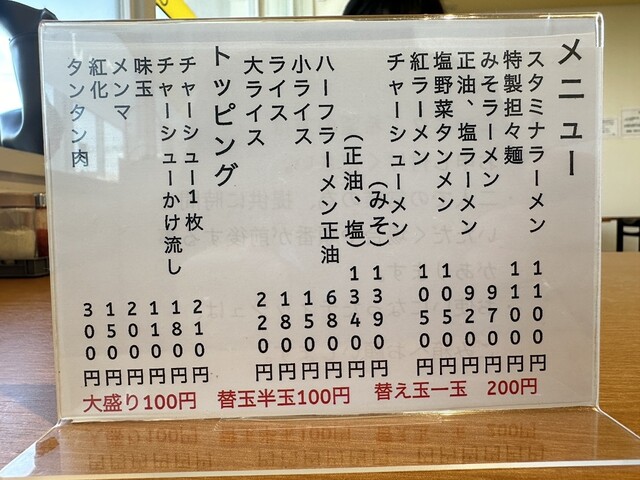 メニュー
スタミナラーメン 1100円
特製担々麺 1100円
みそラーメン 970円
正油、塩ラーメン 920円
塩野菜タンメン 1050円
紅ラーメン 1050円
チャーシューメン
(みそ) 1390円
(正油、塩) 1340円
ハーフラーメン正油 680円
小ライス 150円
ライス 180円
大ライス 220円
トッピング
チャーシュー1枚 210円
チャーシューかけ流し 180円
味玉 110円
メンマ 200円
紅化 150円
タンタン肉 300円
大盛り100円 替玉半玉100円 替え玉一玉 200円